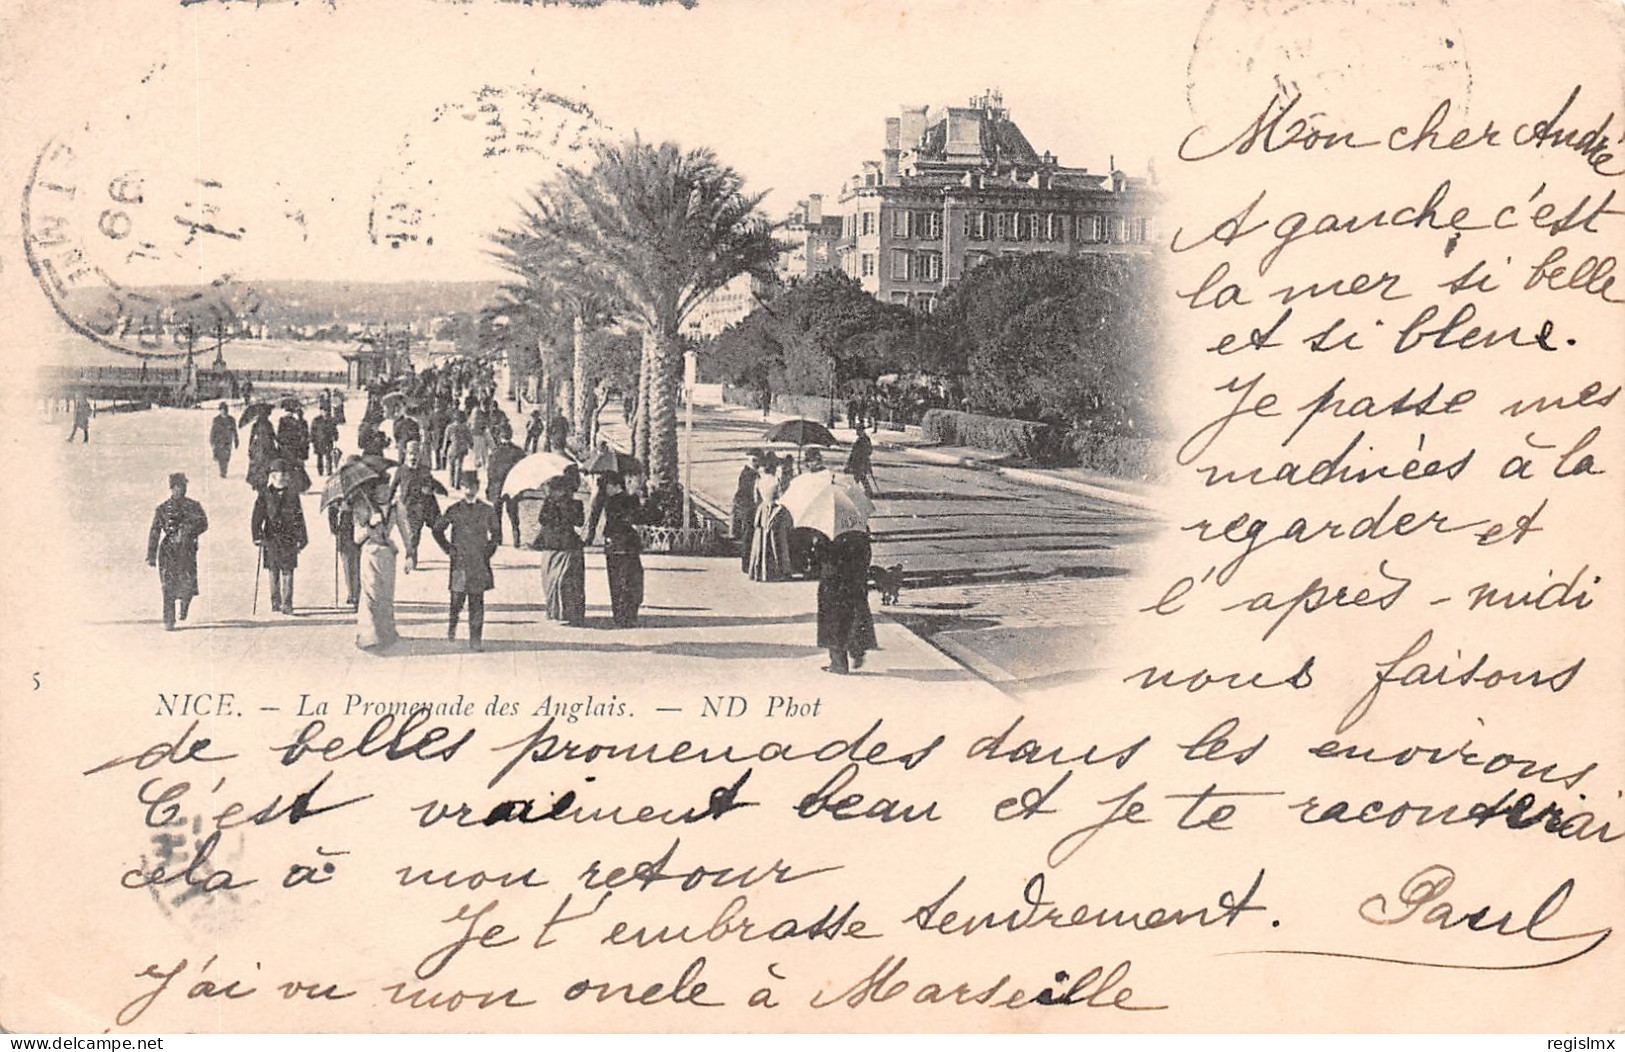 Mon cher André
A gauche c'est
la mer si belle
et si bleue.
Je passe mes
matinées à la
regarder et
l'après-midi
nous faisons
5
NICE. — La Promenade des Anglais. — ND Phot
de belles promenades dans les environs
C'est vraiment beau et je te raconterai
cela à mon retour
Je t'embrasse tendrement. Paul
J'ai vu mon oncle à Marseille
www.delcampe.net
regislmx